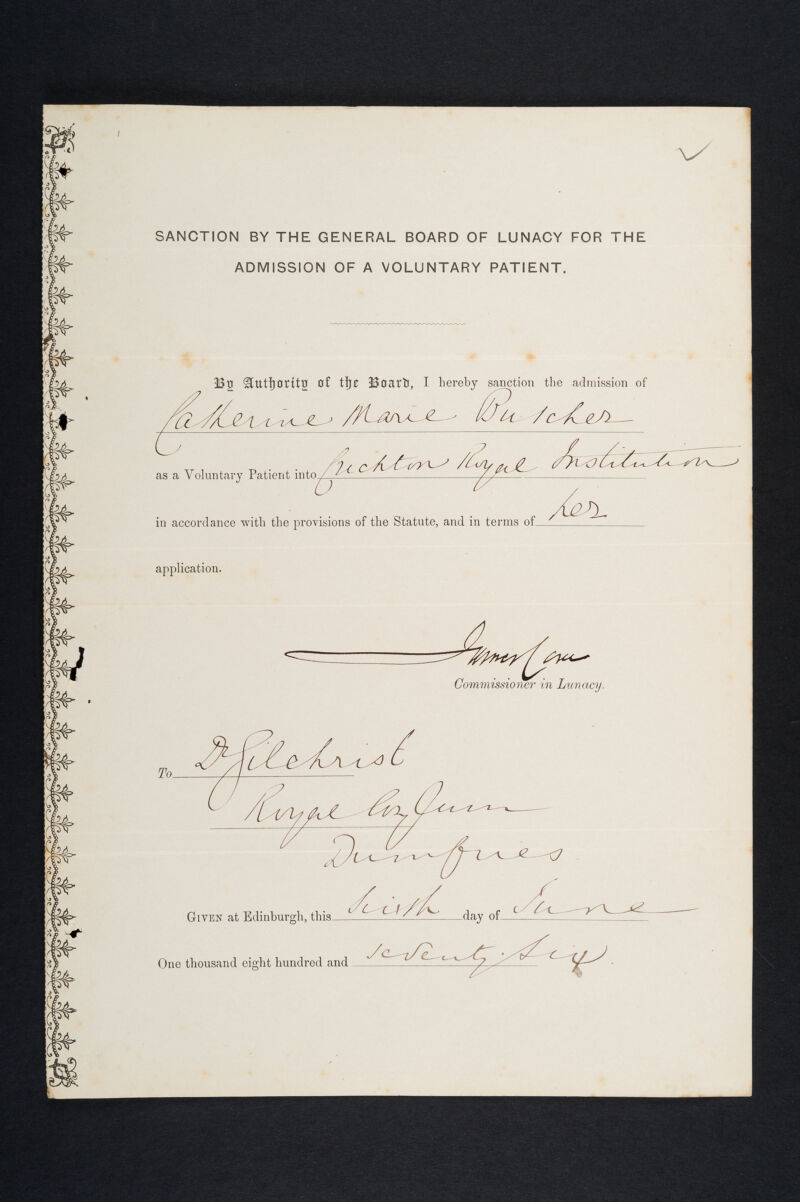 SANCTION BY THE GENERAL BOARD OF LUNACY FOR THE
ADMISSION OF A VOLUNTARY PATIENT.
By Authority of the Board, I hereby sanction the admission of
Catherine Marie Butcher
as a Voluntary Patient into Crichton Royal Institution
in accordance with the provisions of the Statute, and in terms of her
application.
James Coxe
Commissioner in Lunacy.
To Dr Gilchrist
Royal Asylum
Dumfries
GIVEN at Edinburgh, this sixth day of June
One thousand eight hundred and seventy-six.